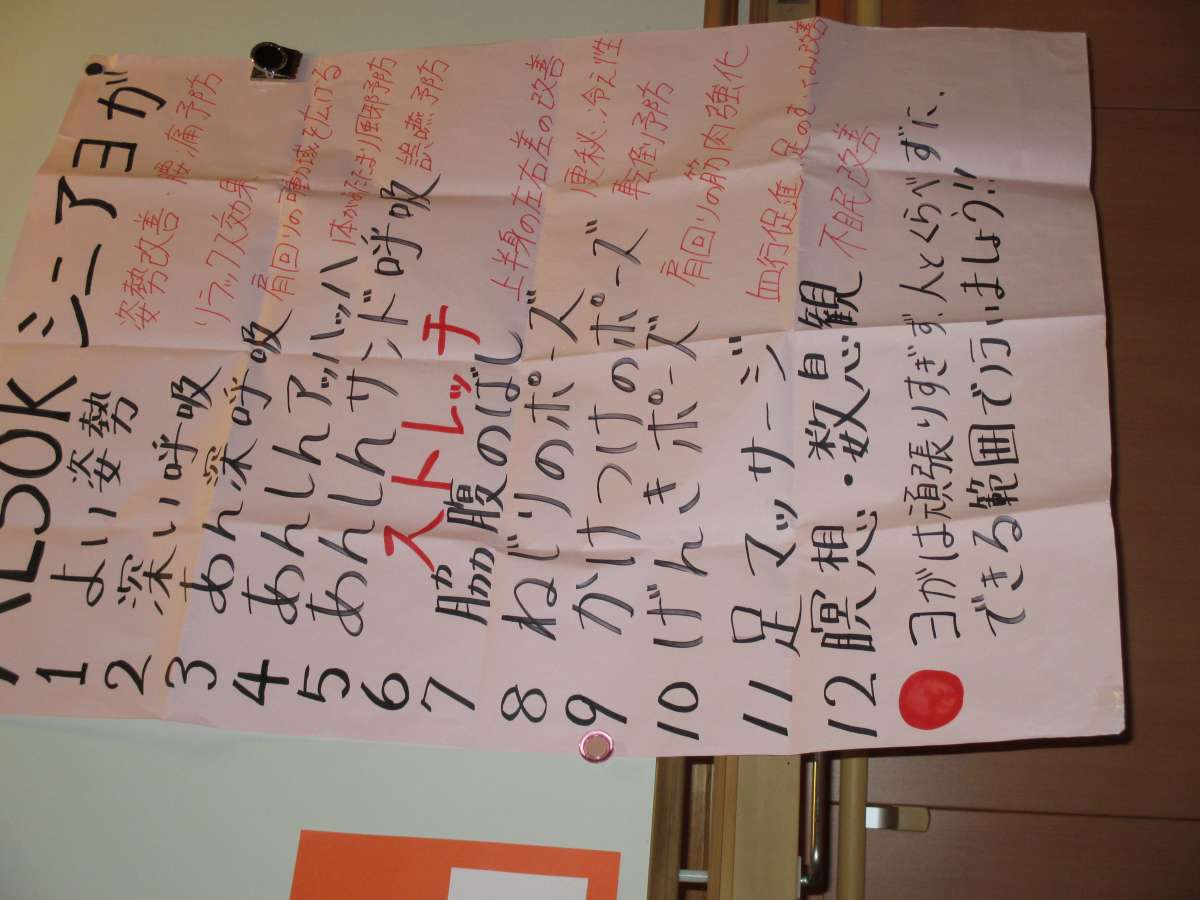 ALSOK シニアヨガ
1 よい姿勢 姿勢改善・腰痛予防
2 深い呼吸 リラックス効果
3 あん深呼吸 肩回りの可動域を広げる
4 あんしんアッハッハ 風邪予防
5 あんしんサンド呼吸 誤嚥予防
6 ストレッチ
7 脇腹のばし 上半身の左右差の改善
8 ねじりのポーズ 便秘・冷え性
9 かけつけのポーズ 転倒予防
10 げんきポーズ 肩回りの筋肉強化
11 足マッサージ 血行促進 足の 改善
12 瞑想・数息観 不眠改善
ヨガは頑張りすぎず、人とくらべずに、
できる範囲で行いましょう!!